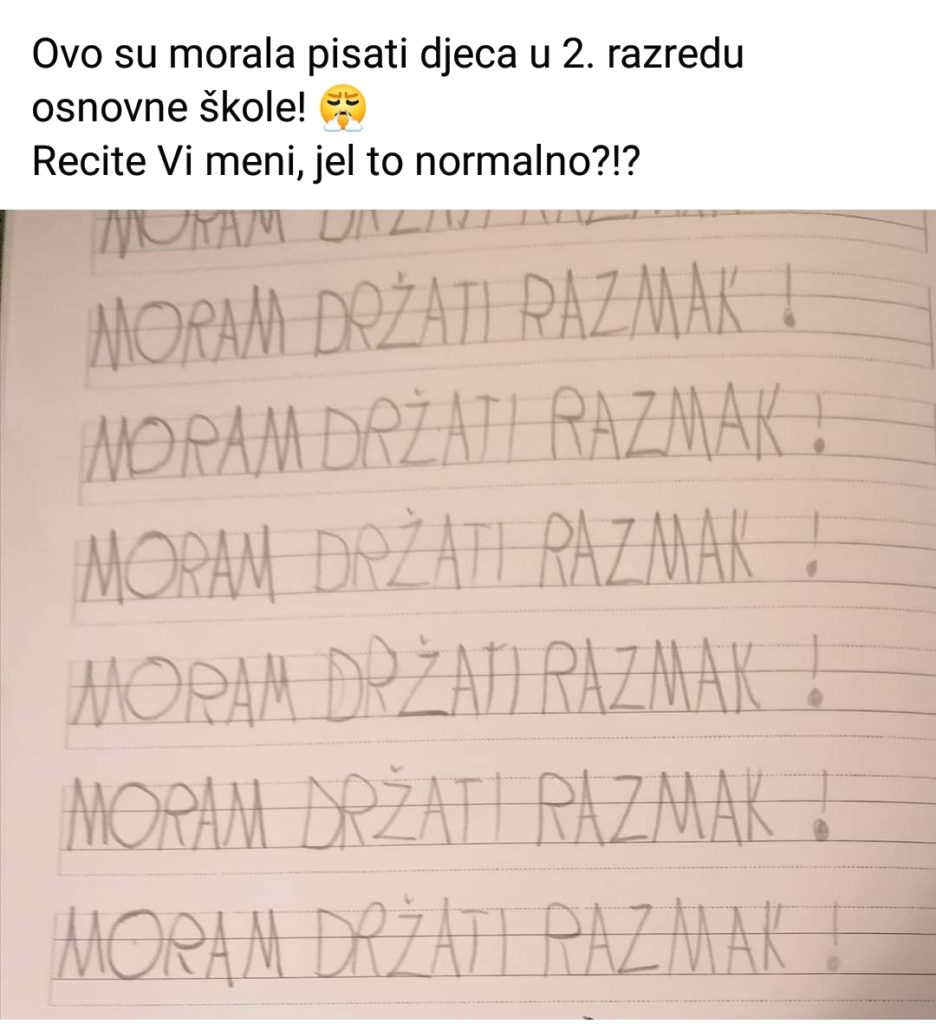 Ovo su morala pisati djeca u 2. razredu
osnovne škole! 😤
Recite Vi meni, jel to normalno?!?
MORAM
MORAM DRŽATI RAZMAK !
MORAM DRŽATI RAZMAK !
MORAM DRŽATI RAZMAK !
MORAM DRŽATI RAZMAK !
MORAM DRŽATI RAZMAK !
MORAM DRŽATI RAZMAK !